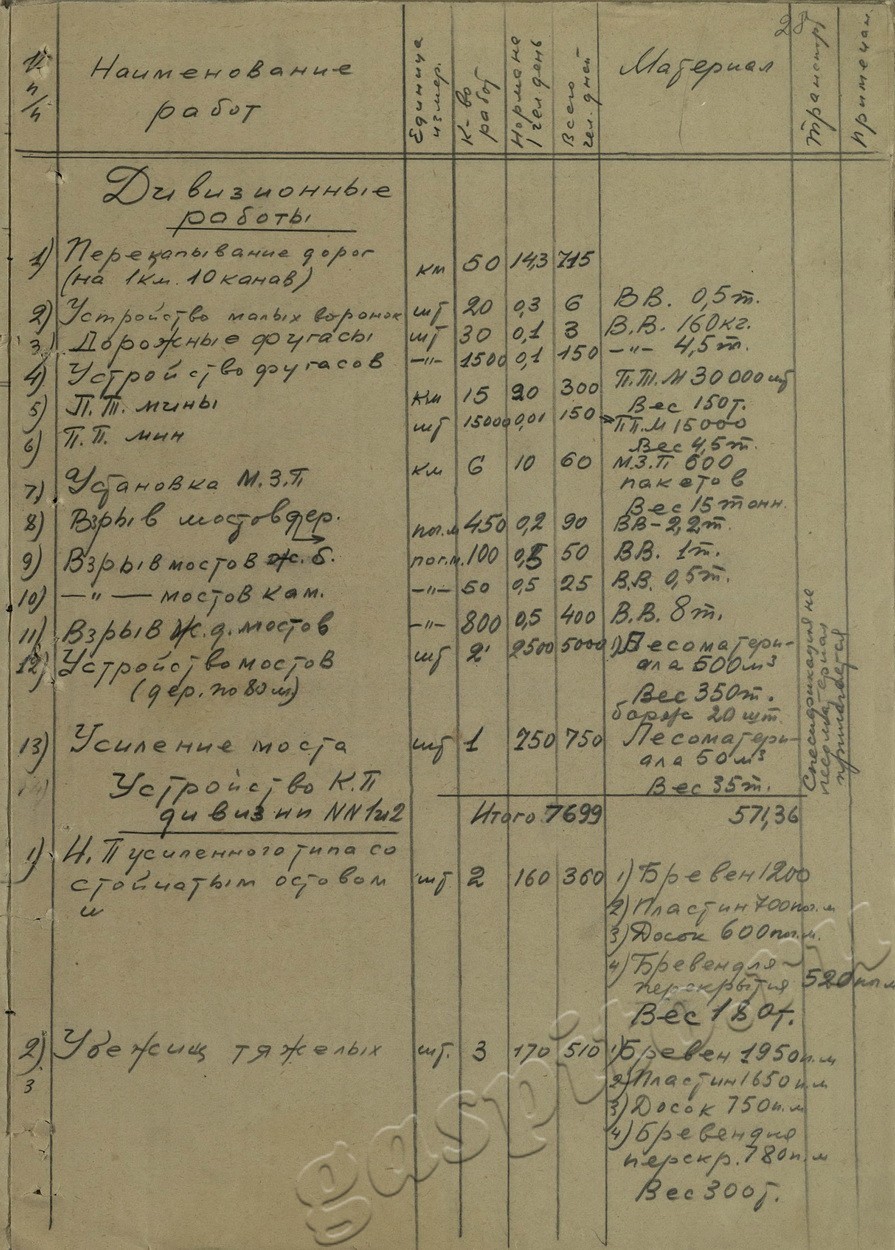 28
№ п/п
Наименование работ
Единица измер.
К-во работ
Норма на 1 чел день
Всего чел. дней
Материал
Транспорт
Примечан.
Дивизионные
работы
1) Перекапывание дорог
(на 1 км. 10 канав) км 50 14,3 715
2) Устройство малых воронок шт 20 0,3 6 В В. 0,5 т.
3) Дорожные фугасы шт 30 0,1 3 В.В. 160 кг.
4) Устройство фугасов —"— 1500 0,1 150 —"— 4,5 т.
5) П.Т. мины км 15 20 300 П.Т.М 30000 шт
Вес 150 т.
6) П.П. мин шт 15000 0,01 150 ППМ 15000
Вес 4,5 т.
7) Установка М.З.П км 6 10 60 М.З.П 600
пакетов
Вес 15 тонн.
8) Взрыв мостов дер. пог.м 450 0,2 90 ВВ-2,2 т.
9) Взрыв мостов ж.б. пог.м. 100 0,5 50 ВВ. 1 т.
10) —"— мостов кам. —"— 50 0,5 25 В.В. 0,5 т.
11) Взрыв ж.д. мостов —"— 800 0,5 400 В.В. 8 т.
12) Устройство мостов шт 2 2500 5000 1) Лесоматери-
ала 500 м³
(дер. по 80 м)
Вес 350 т.
баржа 20 шт.
13) Усиление моста шт 1 750 750 Лесоматери-
ала 50 м³
Вес 35 т.
Спецификация на
лесоматериал
прилагается
Устройство К.П
дивизии NN 1 и 2
Итого 7699 571,36
1) Н.П усиленного типа со
стойчатым остовом шт 2 160 360 1) Бревен 1200
и
2) Пластин 700 пог.м
3) Досок 600 пог.м.
4) Бревен для
перекрытия 520 пог.м
Вес 180 т.
2) Убежищ тяжелых шт. 3 170 510 1) Бревен 1950 п.м
3
2) Пластин 1650 п.м
3) Досок 750 п.м
4) Бревен для
перекр. 780 п.м
Вес 300 т.